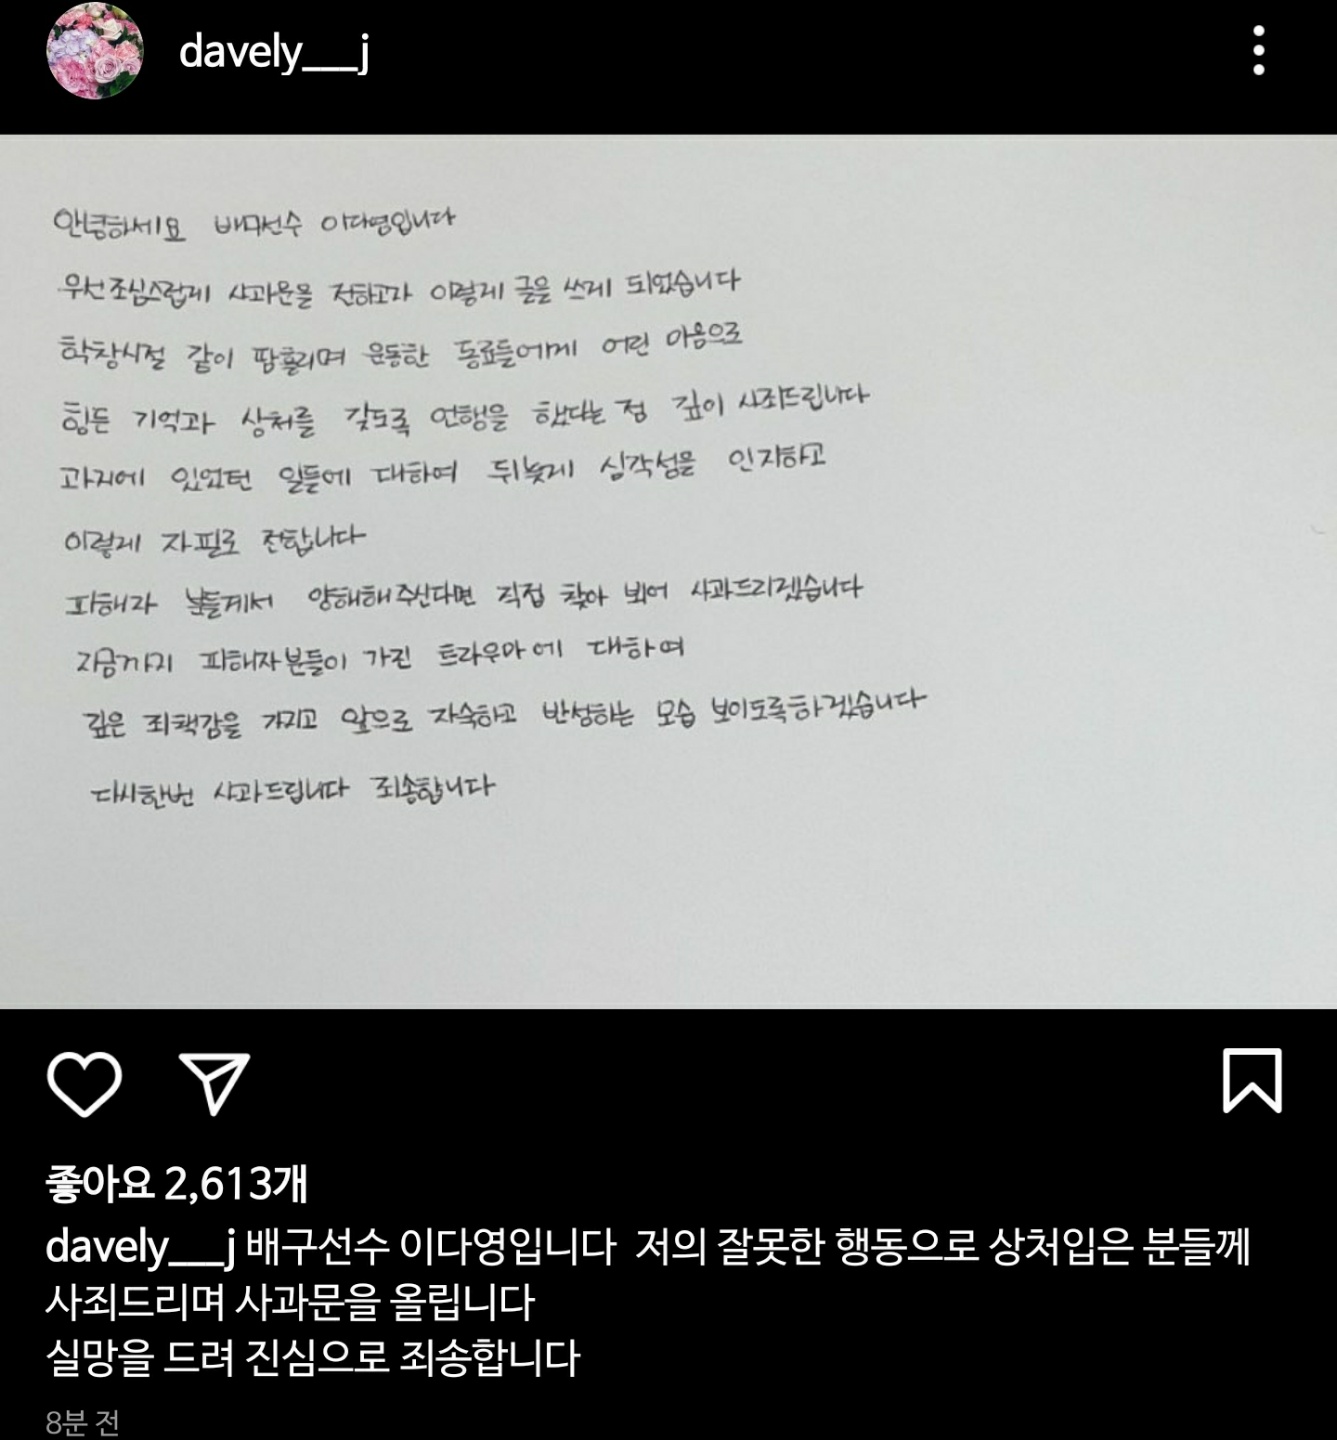 davely___j
안녕하세요 배구선수 이다영입니다
우선 조심스럽게 사과문을 전하고자 이렇게 글을 쓰게 되었습니다
학창시절 같이 땀흘리며 운동한 동료들에게 어린 마음으로
힘든 기억과 상처를 갖도록 언행을 했다는 점 깊이 사죄드립니다
과거에 있었던 일들에 대하여 뒤늦게 심각성을 인지하고
이렇게 자필로 전합니다
피해자 분들께서 양해해주신다면 직접 찾아 뵈어 사과드리겠습니다
지금까지 피해자분들이 가진 트라우마에 대하여
깊은 죄책감을 가지고 앞으로 자숙하고 반성하는 모습 보이도록하겠습니다
다시한번 사과드립니다 죄송합니다
좋아요 2,613개
davely___j 배구선수 이다영입니다 저의 잘못한 행동으로 상처입은 분들께
사죄드리며 사과문을 올립니다
실망을 드려 진심으로 죄송합니다
8분 전